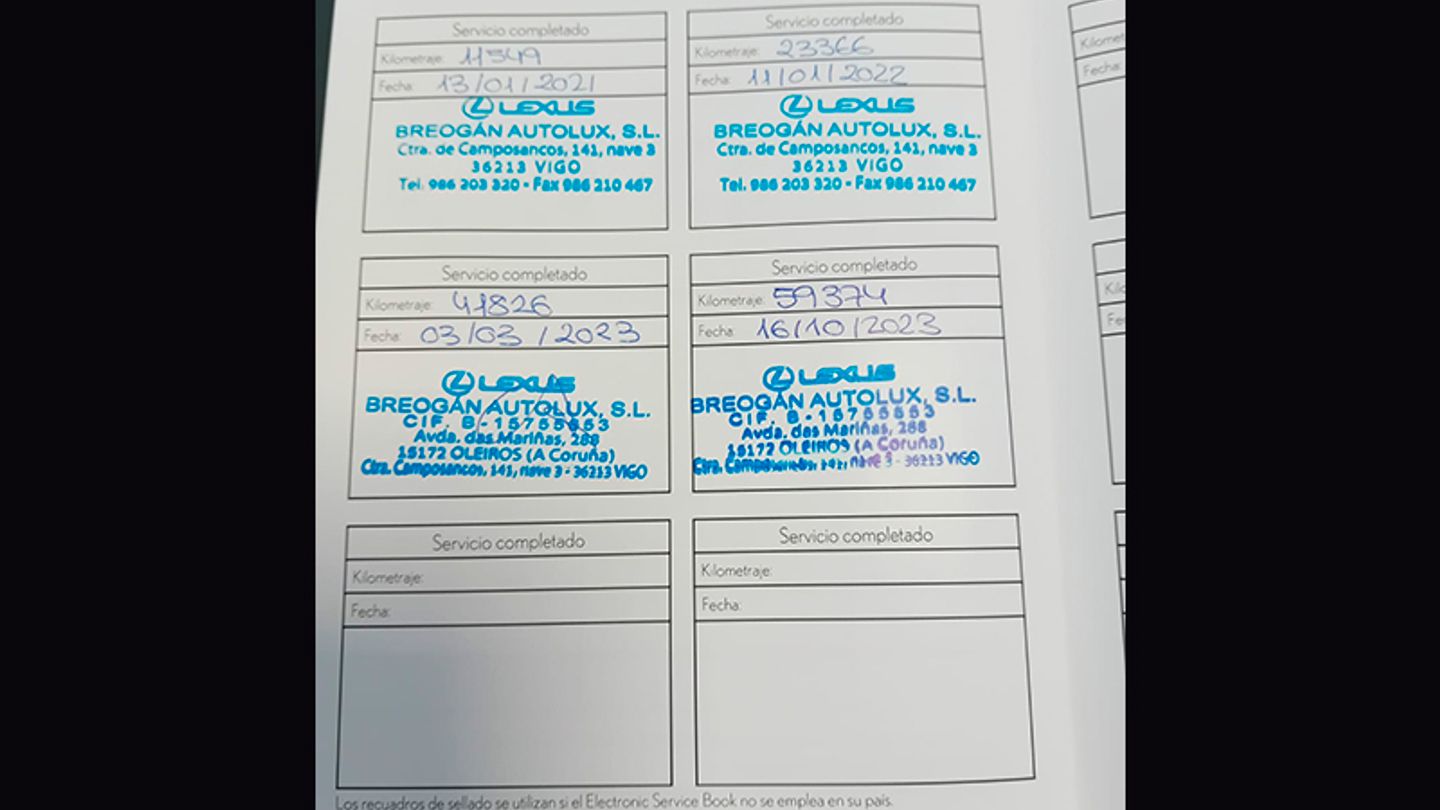 Servicio completado
Kilometraje: 11549
Fecha: 13/01/2021
LEXUS
BREOGÁN AUTOLUX, S.L.
Ctra. de Camposancos, 141, nave 3
36213 VIGO
Tel. 986 203 320 - Fax 986 210 467
Servicio completado
Kilometraje: 23366
Fecha: 11/01/2022
LEXUS
BREOGÁN AUTOLUX, S.L.
Ctra. de Camposancos, 141, nave 3
36213 VIGO
Tel. 986 203 320 - Fax 986 210 467
Servicio completado
Kilometraje: 41826
Fecha: 03/03/2023
LEXUS
BREOGÁN AUTOLUX, S.L.
CIF. B-15755553
Avda. das Mariñas, 288
15172 OLEIROS (A Coruña)
Ctra. Camposancos, 141, nave 3 - 36213 VIGO
Servicio completado
Kilometraje: 59374
Fecha: 16/10/2023
LEXUS
BREOGÁN AUTOLUX, S.L.
CIF. B-15755553
Avda. das Mariñas, 288
15172 OLEIROS (A Coruña)
Ctra. Camposancos, 141, nave 3 - 36213 VIGO
Servicio completado
Kilometraje:
Fecha:
Servicio completado
Kilometraje:
Fecha:
Kilomet
Fecha:
Kilo
Fe
Los recuadros de sellado se utilizan si el Electronic Service Book no se emplea en su país.